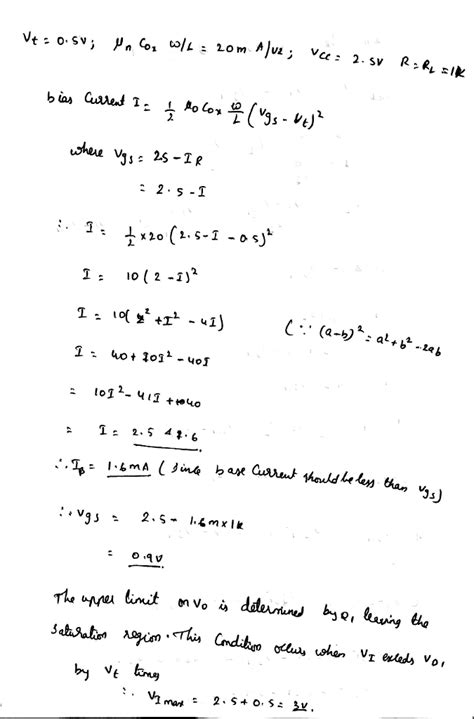 Vt = 0.5V; μn Cox W/L = 20m A/V2; Vcc = 2.5V R = RL = 1K
bias Current I = 1/2 μo Cox W/L (Vgs - Vt)²
where Vgs = 25 - IR
= 2.5 - I
∴ I = 1/2 x20 (2.5 - I - 0.5)²
I = 10(2-I)²
I = 10(2² + I² - 4I) (∵ (a-b)² = a² + b² - 2ab
I = 40 + 20I² - 40I
= 10I² - 41I + 40
= I = 2.5 & 1.6
∴ IB = 1.6mA (since base Current should be less than Vgs)
∴ Vgs = 2.5 - 1.6mx1k
= 0.9V
The upper limit on Vo is determined by Q1 leaving the
Saturation region. This Condition occurs when VI exceeds VD1
by Vt times
∴ VI max = 2.5 + 0.5 = 3V.